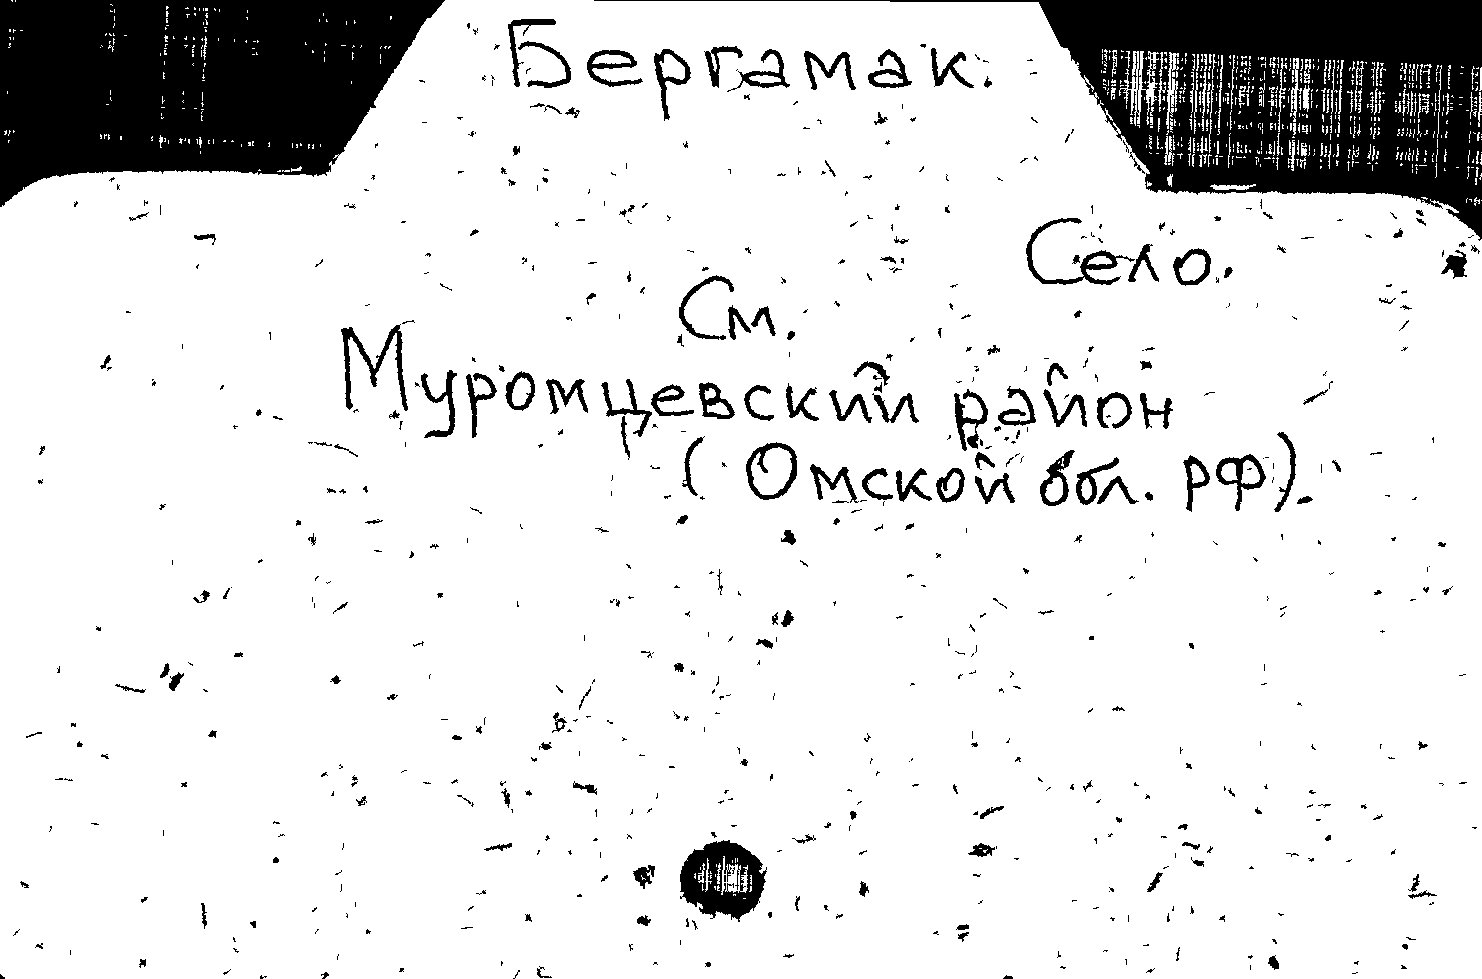 Бергамак.
Село.
См.
Муромцевский район
(Омской обл. РФ).